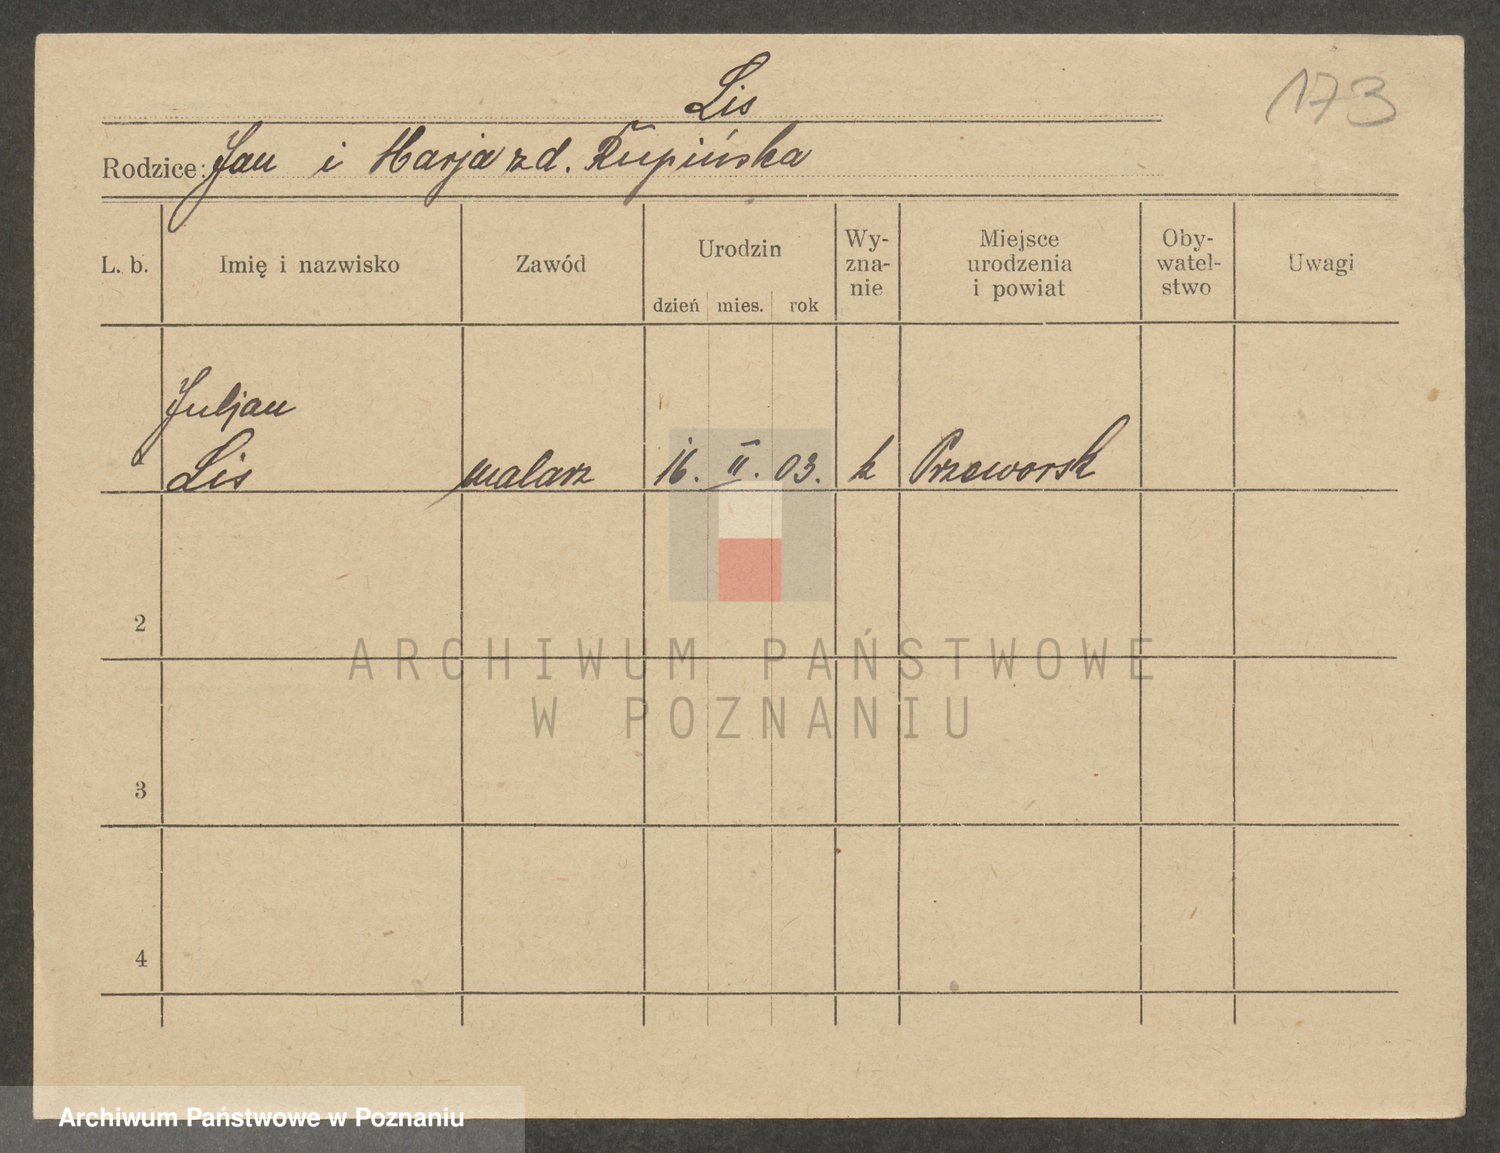 Lis
173
Rodzice: Jan i Marja z d. Rupińska
L. b. Imię i nazwisko Zawód Urodzin dzień mies. rok Wy-zna-nie Miejsce urodzenia i powiat Oby-watel-stwo Uwagi
Juljan
Lis malarz 16. II. 03. k Przeworsk
2
ARCHIWUM PAŃSTWOWE
W POZNANIU
3
4
Archiwum Państwowe w Poznaniu